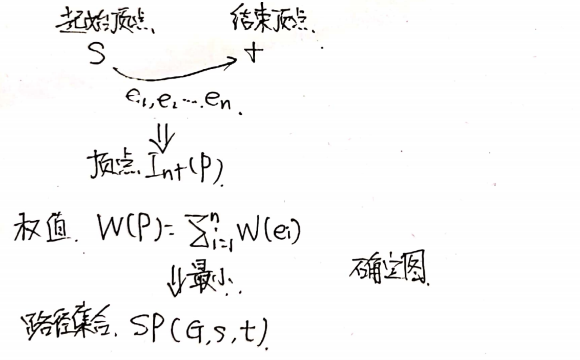 起始顶点. 结束顶点.
S t
e₁,e₂…eₙ.
⇓
顶点 Int(P).
权值. W(P)= ∑ⁿᵢ₌₁ W(eᵢ)
⇓最小. 确定图.
路径集合. SP(G,s,t).